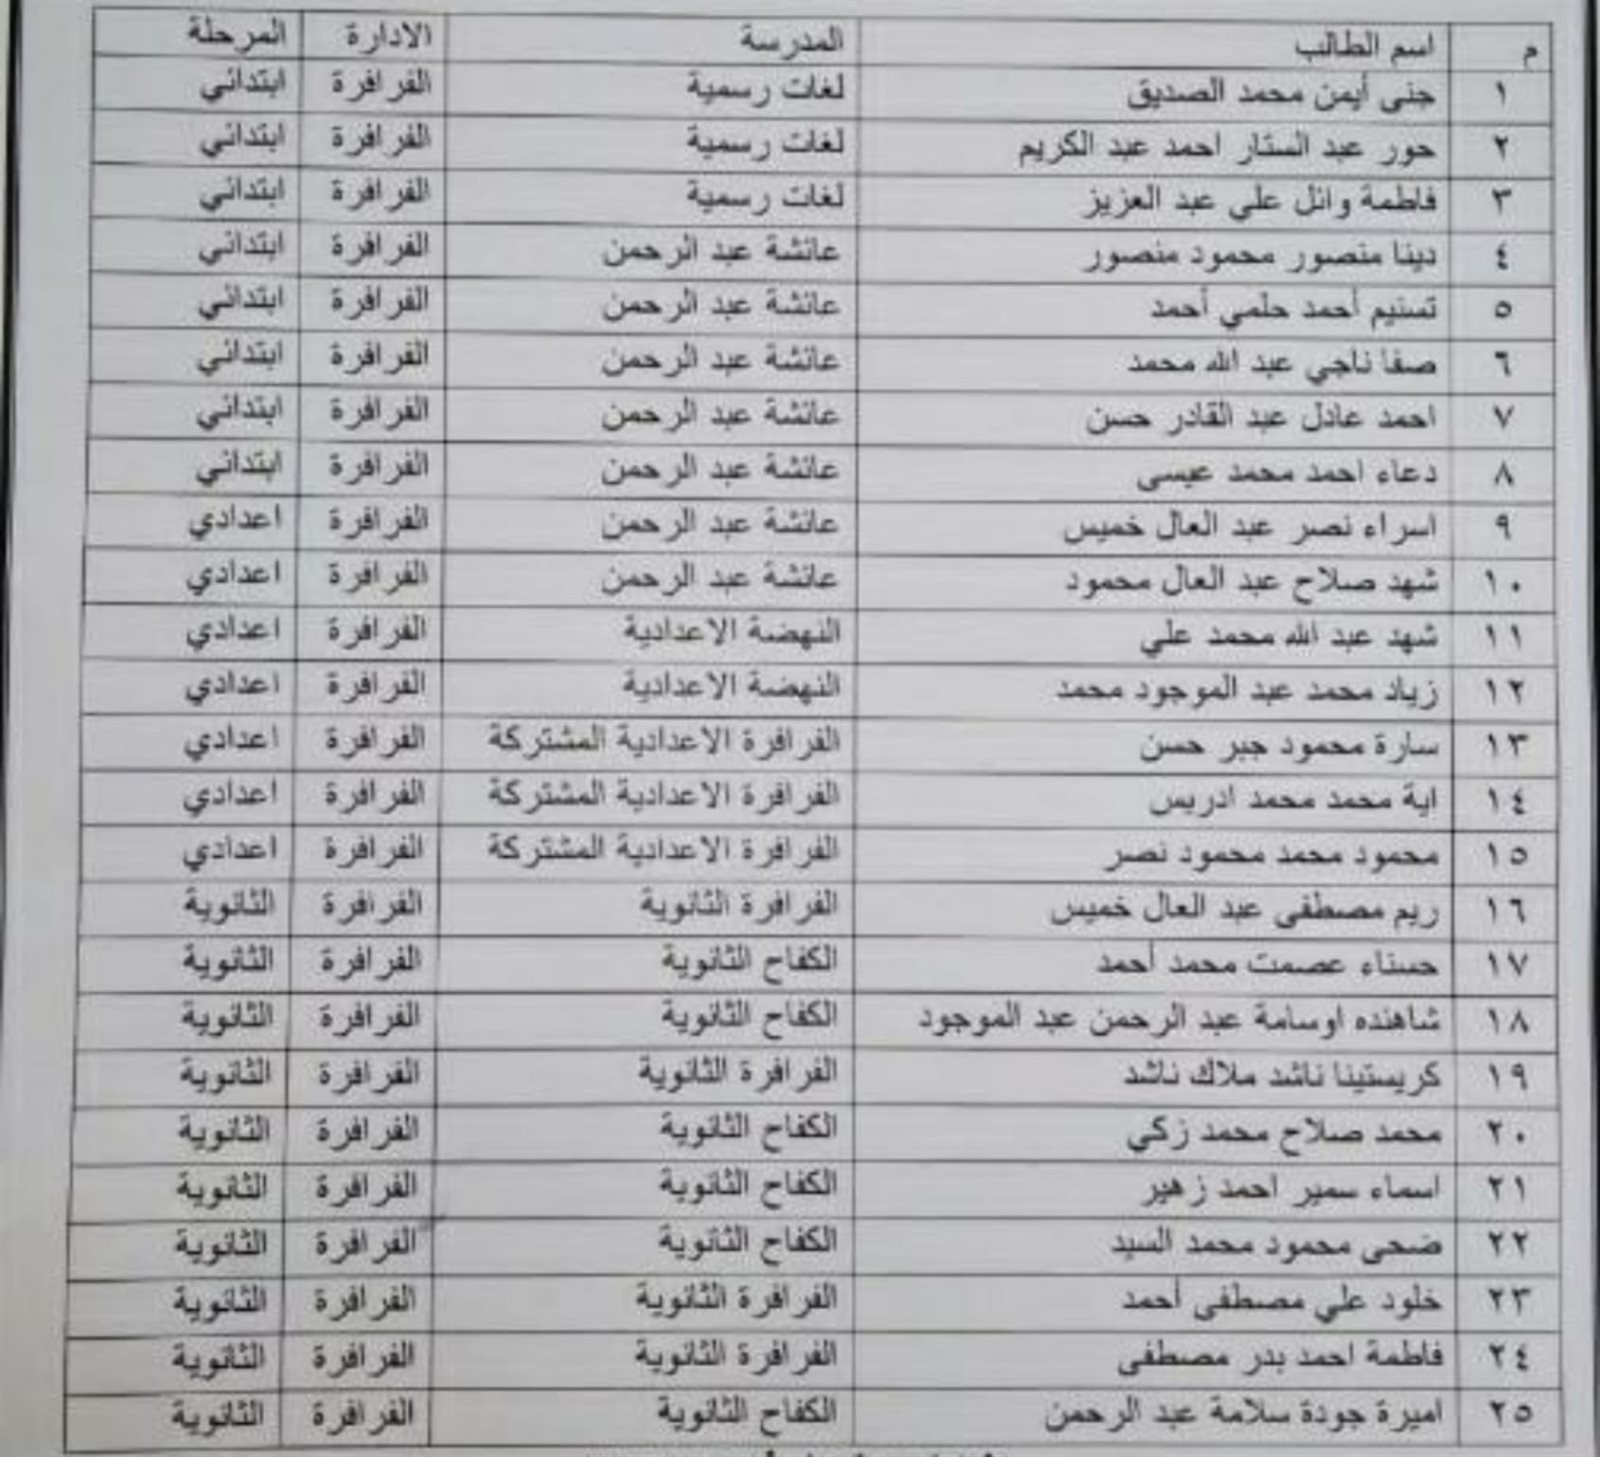 م اسم الطالب المدرسة الادارة المرحلة
١ جنى أيمن محمد الصديق لغات رسمية الفرافرة ابتدائي
٢ حور عبد الستار احمد عبد الكريم لغات رسمية الفرافرة ابتدائي
٣ فاطمة وائل على عبد العزيز لغات رسمية الفرافرة ابتدائي
٤ دينا منصور محمود منصور عائشة عبد الرحمن الفرافرة ابتدائي
٥ تسنيم أحمد حلمي أحمد عائشة عبد الرحمن الفرافرة ابتدائي
٦ صفا ناجي عبد الله محمد عائشة عبد الرحمن الفرافرة ابتدائي
٧ احمد عادل عبد القادر حسن عائشة عبد الرحمن الفرافرة ابتدائي
٨ دعاء احمد محمد عيسى عائشة عبد الرحمن الفرافرة ابتدائي
٩ اسراء نصر عبد العال خميس عائشة عبد الرحمن الفرافرة اعدادي
١٠ شهد صلاح عبد العال محمود عائشة عبد الرحمن الفرافرة اعدادي
١١ شهد عبد الله محمد علي النهضة الاعدادية الفرافرة اعدادي
١٢ زياد محمد عبد الموجود محمد النهضة الاعدادية الفرافرة اعدادي
١٣ سارة محمود جبر حسن الفرافرة الاعدادية المشتركة الفرافرة اعدادي
١٤ اية محمد محمد ادريس الفرافرة الاعدادية المشتركة الفرافرة اعدادي
١٥ محمود محمد محمود نصر الفرافرة الاعدادية المشتركة الفرافرة اعدادي
١٦ ريم مصطفى عبد العال خميس الفرافرة الثانوية الفرافرة الثانوية
١٧ حسناء عصمت محمد أحمد الكفاح الثانوية الفرافرة الثانوية
١٨ شاهنده اوسامة عبد الرحمن عبد الموجود الكفاح الثانوية الفرافرة الثانوية
١٩ كريستينا ناشد ملاك ناشد الفرافرة الثانوية الفرافرة الثانوية
٢٠ محمد صلاح محمد زكي الكفاح الثانوية الفرافرة الثانوية
٢١ اسماء سمير احمد زهير الكفاح الثانوية الفرافرة الثانوية
٢٢ ضحى محمود محمد السيد الكفاح الثانوية الفرافرة الثانوية
٢٣ خلود علي مصطفى أحمد الفرافرة الثانوية الفرافرة الثانوية
٢٤ فاطمة احمد بدر مصطفى الفرافرة الثانوية الفرافرة الثانوية
٢٥ اميرة جودة سلامة عبد الرحمن الكفاح الثانوية الفرافرة الثانوية